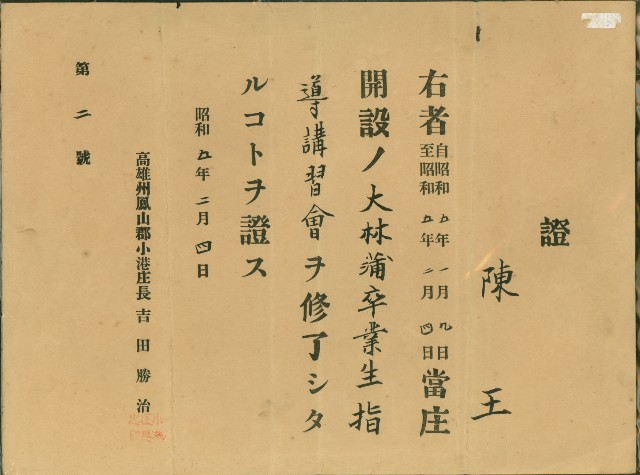 證
陳 王
右者自昭和五年一月九日至昭和五年二月四日當庄
開設ノ大林蒲卒業生指
導講習會ヲ修了シタ
ルコトヲ證ス
昭和五年二月四日
高雄州鳳山郡小港庄長 吉田勝治
第二號